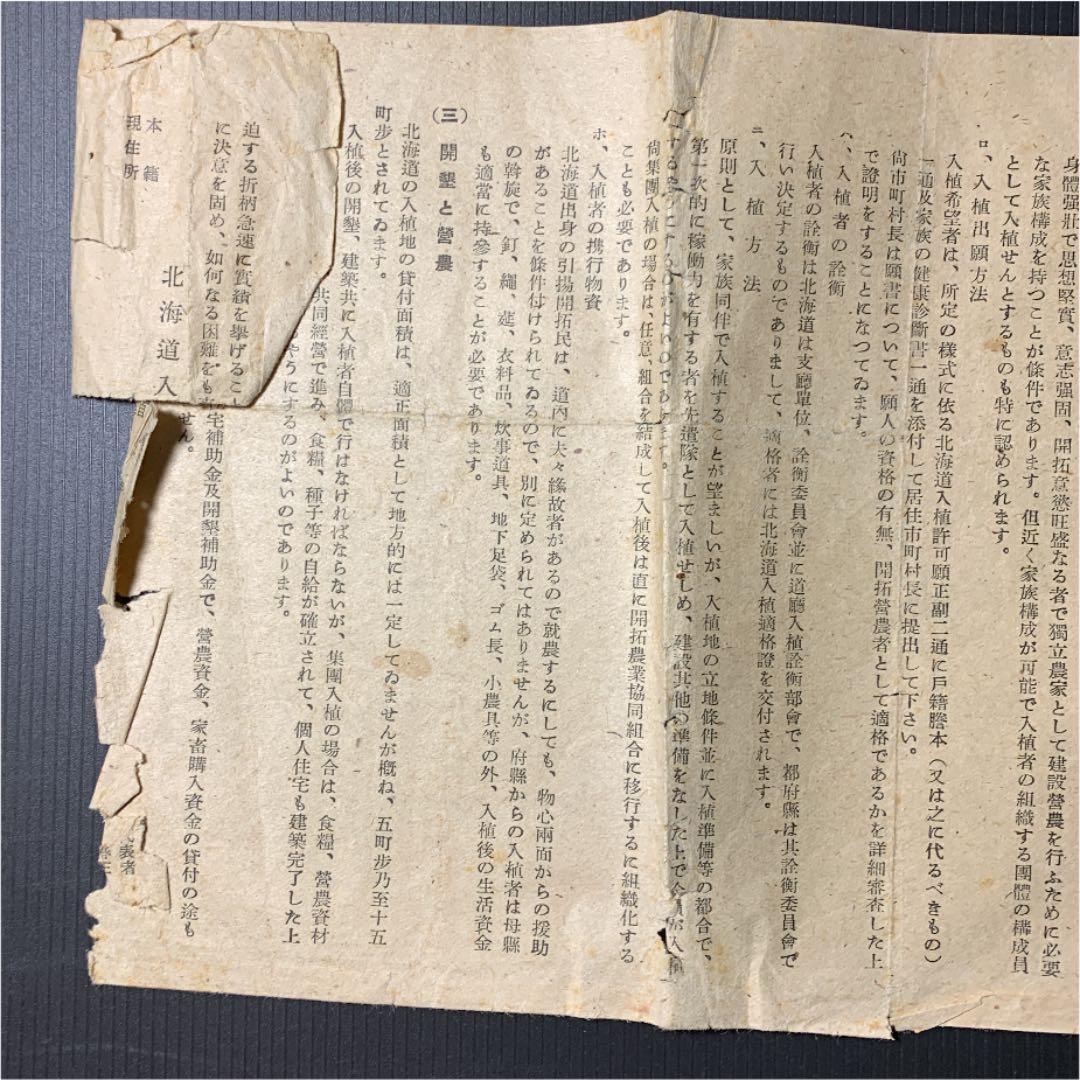 身體强壯で思想堅實、意志强固、開拓意慾旺盛なる者で獨立農家として建設營農を行ふために必要
な家族構成を持つことが條件であります。但近く家族構成が可能で入植者の組織する團體の構成員
として入植せんとするものも特に認められます。
ロ、入植出願方法
入植希望者は、所定の樣式に依る北海道入植許可願正副二通に戶籍謄本(又は之に代るべきもの)
一通及家族の健康診斷書一通を添付して居住市町村長に提出して下さい。
尙市町村長は願書について、願人の資格の有無、開拓營農者として適格であるかを詳細審査した上
で證明をすることになつてゐます。
ハ、入植者の詮衡
入植者の詮衡は北海道は支廳單位、詮衡委員會並に道廳入植詮衡部會で、都府縣は其詮衡委員會で
行い決定するものでありまして、適格者には北海道入植適格證を交付されます。
ニ、入植方法
原則として、家族同伴で入植することが望ましいが、入植地の立地條件並に入植準備等の都合で、
第一次的に稼働力を有する者を先遣隊として入植せしめ、建設其他の準備をなした上で全員が入植
するやうにするのがよいのであります。
尙集團入植の場合は、任意、組合を結成して入植後は直に開拓農業協同組合に移行するに組織化する
ことも必要であります。
ホ、入植者の携行物資
北海道出身の引揚開拓民は、道內に夫々緣故者があるので就農するにしても、物心兩面からの援助
があることを條件付けられてゐるので、別に定められてはありませんが、府縣からの入植者は母縣
の斡旋で、釘、繩、莚、衣料品、炊事道具、地下足袋、ゴム長、小農具等の外、入植後の生活資金
も適當に持參することが必要であります。
(三)開墾と營農
北海道の入植地の貸付面積は、適正面積として地方的には一定してゐませんが槪ね、五町步乃至十五
町步とされてゐます。
入植後の開墾、建築共に入植者自體で行はなければならないが、集團入植の場合は、食糧、營農資材
共同經營で進み、食糧、種子等の自給が確立されて、個人住宅も建築完了した上
やうにするのがよいのであります。
宅補助金及開墾補助金で、營農資金、家畜購入資金の貸付の途も
せん。
迫する折柄急速に實績を擧げること
に決意を固め、如何なる困難をも
北海道入
本籍
現住所
代表者